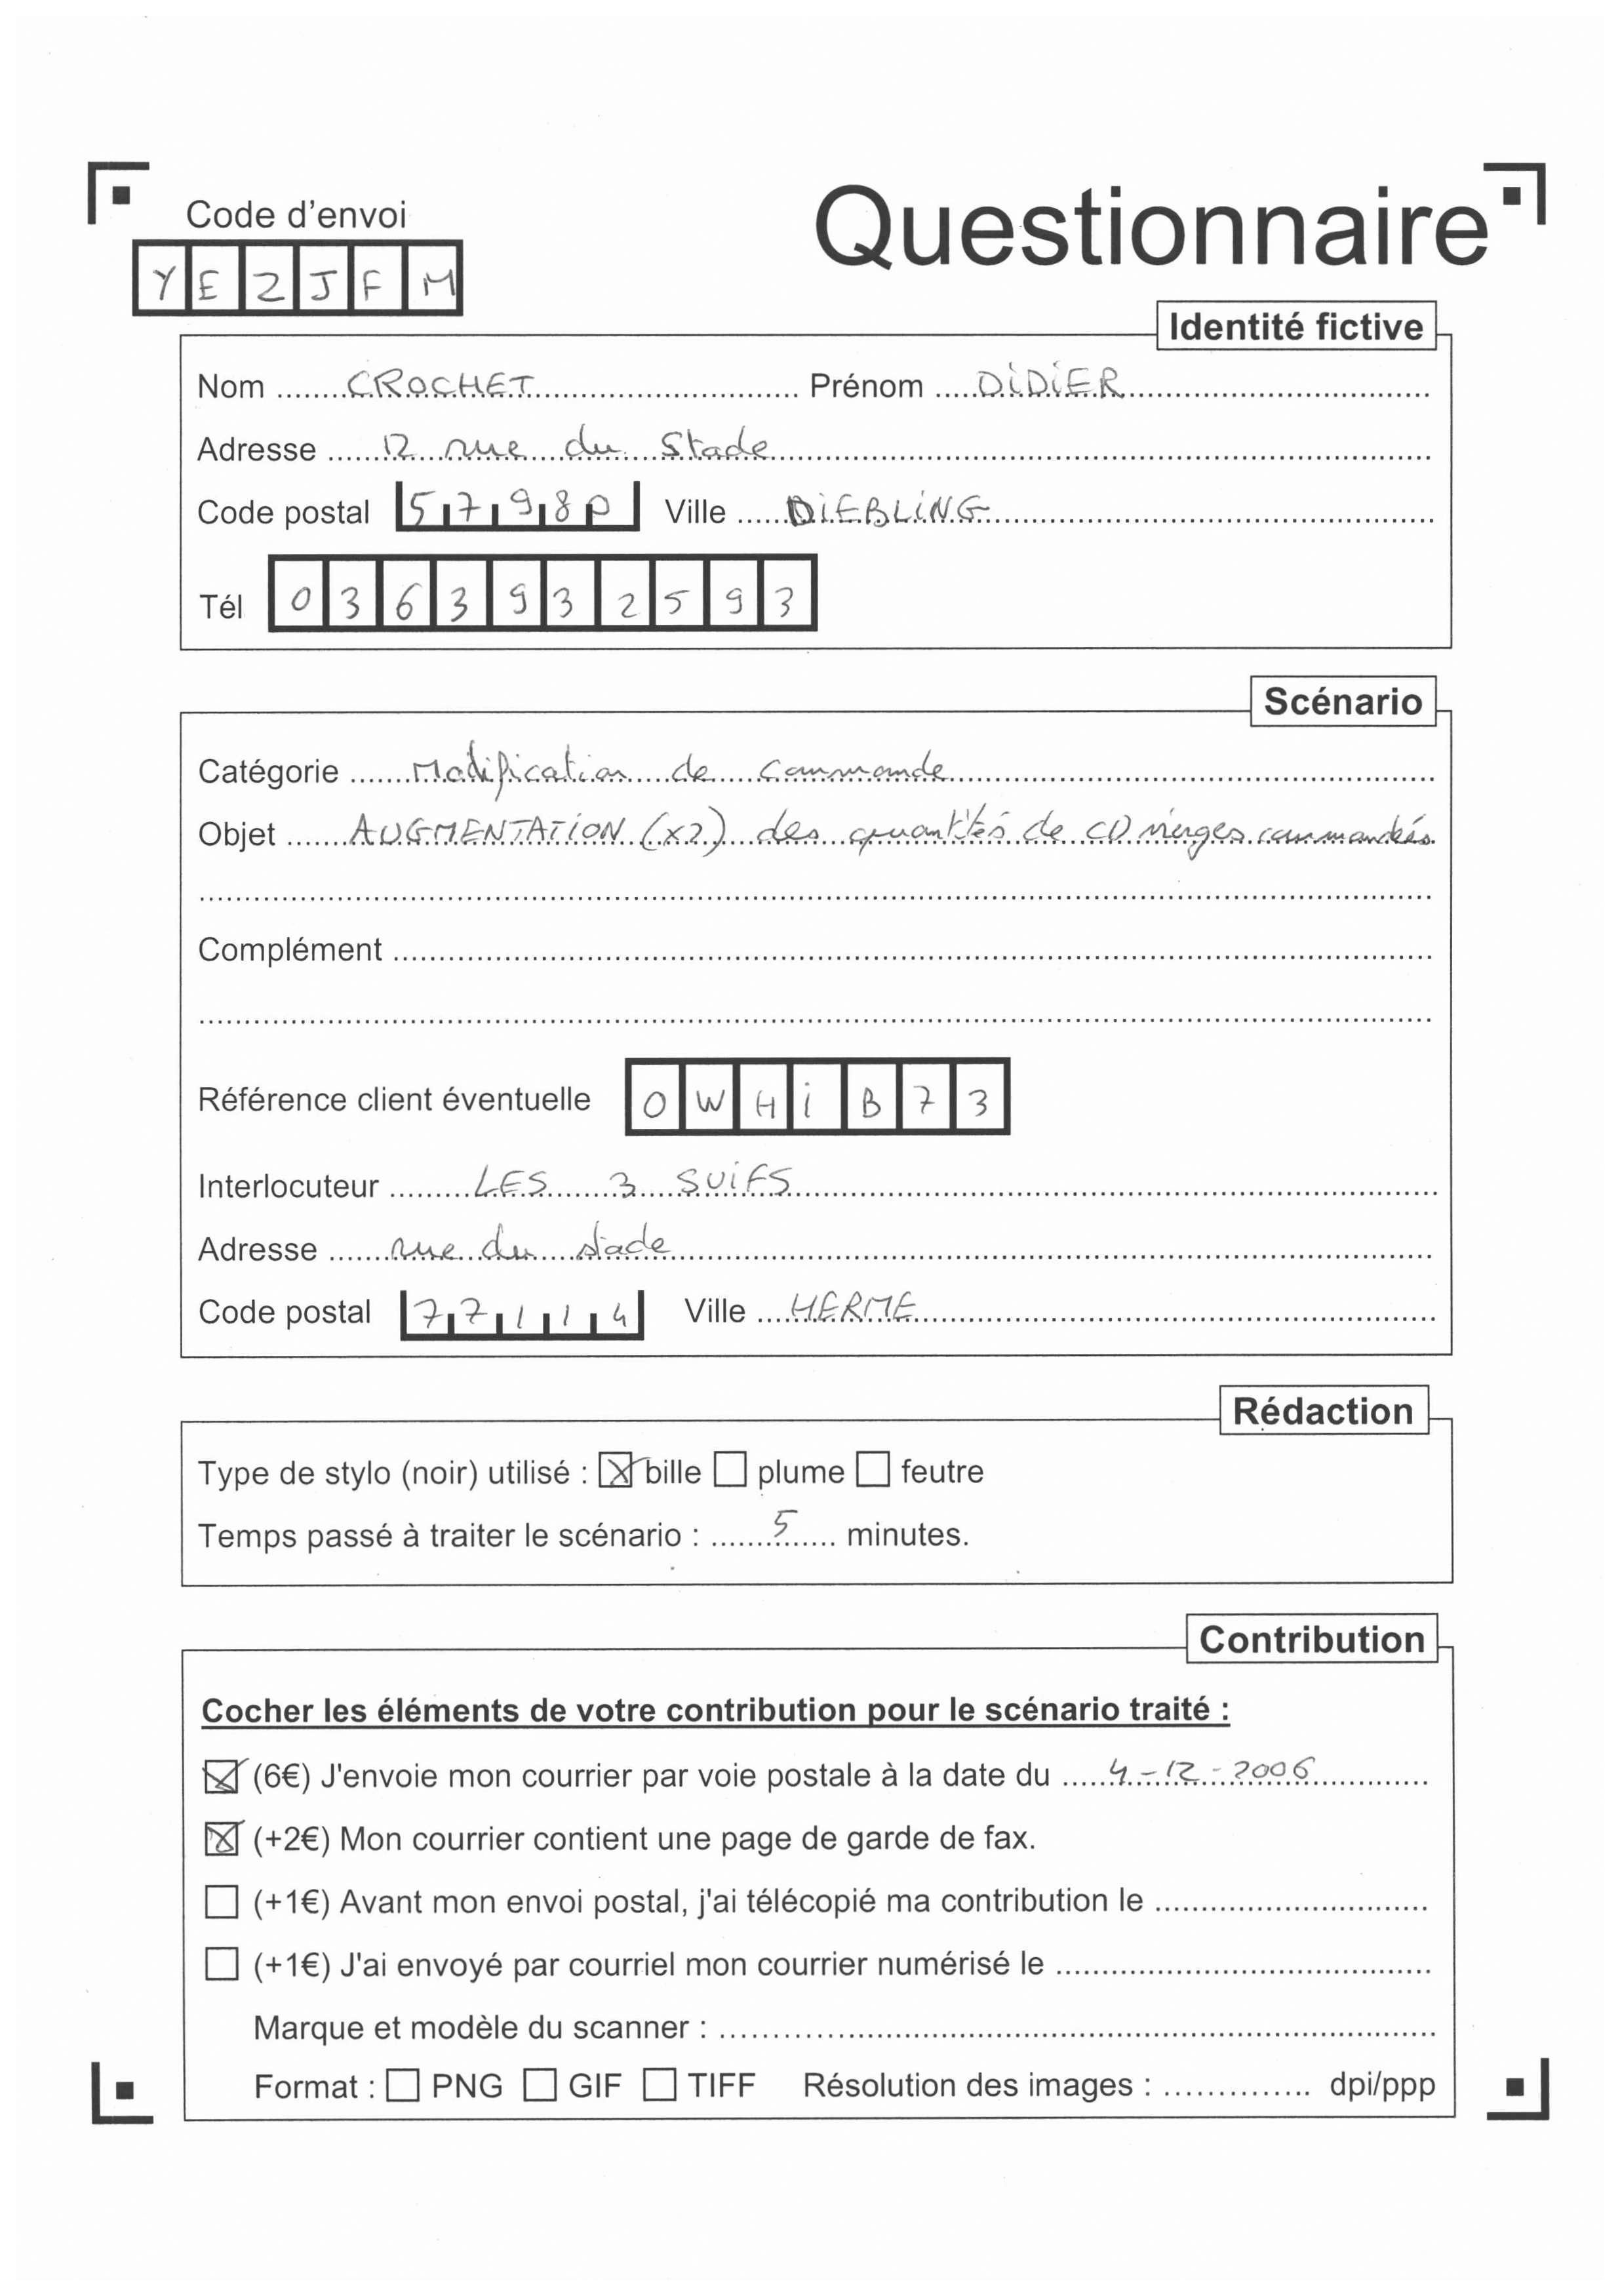 Questionnaire
Code d'envoi
YEZJFM
Identité fictive
Nom ........CROCHET........ Prénom .....DIDIER........
Adresse ......12 rue du Stade........
Code postal 57980 Ville .....DIEBLING........
Tél 0363932593
Scénario
Catégorie .......Modification de commande........
Objet .......AUGMENTATION (x2) des quantités de CD vierges commandés
Complément ........
Référence client éventuelle OWHIB73
Interlocuteur .........LES 3 SUIFS........
Adresse ......rue du stade........
Code postal 77114 Ville ...HERME........
Rédaction
Type de stylo (noir) utilisé : ☒ bille ☐ plume ☐ feutre
Temps passé à traiter le scénario : .......5....... minutes.
Contribution
Cocher les éléments de votre contribution pour le scénario traité :
☒ (6€) J'envoie mon courrier par voie postale à la date du .....4-12-2006........
☒ (+2€) Mon courrier contient une page de garde de fax.
☐ (+1€) Avant mon envoi postal, j'ai télécopié ma contribution le ........
☐ (+1€) J'ai envoyé par courriel mon courrier numérisé le ........
Marque et modèle du scanner : ........
Format : ☐ PNG ☐ GIF ☐ TIFF Résolution des images : .............. dpi/ppp